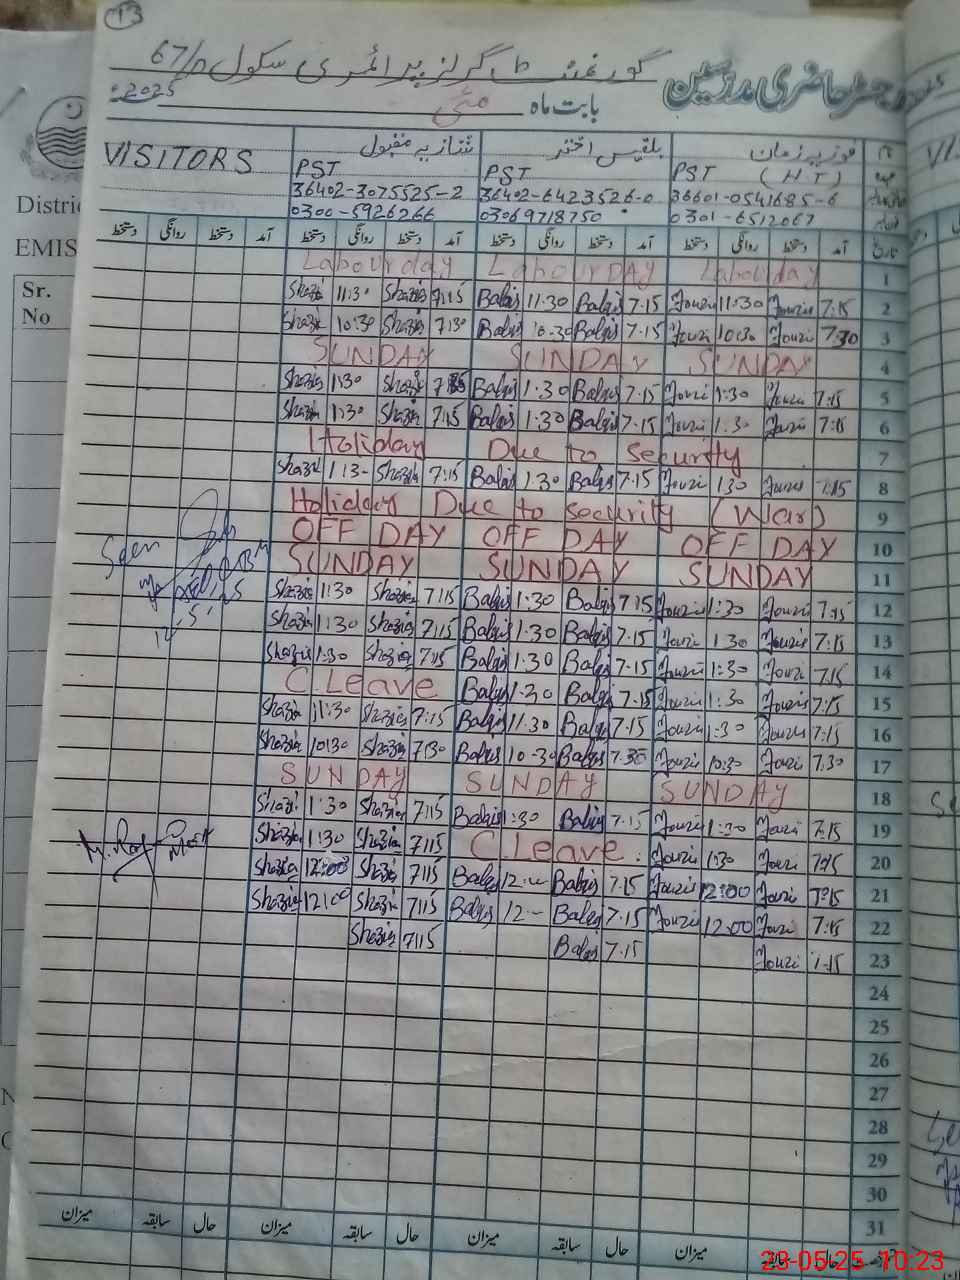 13
گورنمنٹ گرلز پرائمری سکول 67/D
رجسٹر حاضری مدرسین
بابت ماہ مئی 2025ء
VISITORS شازیہ مقبول بلقیس اختر فوزیہ زمان نام
PST PST PST (H.T) عہدہ
36402-3075525-2 36402-6423526-0 36601-0541685-6
0300-5926266 03069718750 0301-6512067
دستخط روانگی دستخط آمد دستخط روانگی دستخط آمد دستخط روانگی دستخط آمد دستخط روانگی دستخط آمد تاریخ
Labour day Labour DAY Labour day 1
Shazia 11:30 Shazia 7:15 Balqis 11.30 Balqis 7.15 Fouzi 11:30 Fouzi 7:15 2
Shazia 10:30 Shazia 7:30 Balqis 10.30 Balqis 7.15 Fouzi 10:30 Fouzi 7:30 3
SUNDAY SUNDAY SUNDAY 4
Shazia 1:30 Shazia 7:15 Balqis 1.30 Balqis 7.15 Fouzi 1:30 Fouzi 7:15 5
Shazia 1:30 Shazia 7:15 Balqis 1.30 Balqis 7.15 Fouzi 1:30 Fouzi 7:15 6
Holiday Due to Security 7
Shazia 1:30 Shazia 7:15 Balqis 1.30 Balqis 7.15 Fouzi 1:30 Fouzi 7:15 8
Holiday Due to security (War) 9
OFF DAY OFF DAY OFF DAY 10
SUNDAY SUNDAY SUNDAY 11
Seen
Shazia 1:30 Shazia 7:15 Balqis 1:30 Balqis 7.15 Fouzi 1:30 Fouzi 7:15 12
Shazia 1:30 Shazia 7:15 Balqis 1:30 Balqis 7.15 Fouzi 1:30 Fouzi 7:15 13
Shazia 1:30 Shazia 7:15 Balqis 1:30 Balqis 7.15 Fouzi 1:30 Fouzi 7.15 14
C.Leave Balqis 1:30 Balqis 7.15 Fouzi 1:30 Fouzi 7:15 15
Shazia 11:30 Shazia 7:15 Balqis 11.30 Balqis 7.15 Fouzi 1:30 Fouzi 7:15 16
Shazia 10:30 Shazia 7:30 Balqis 10-30 Balqis 7.30 Fouzi 10:30 Fouzi 7.30 17
SUNDAY SUNDAY SUNDAY 18
Shazia 1:30 Shazia 7:15 Balqis 1:30 Balqis 7.15 Fouzi 1:30 Fouzi 7:15 19
Shazia 1:30 Shazia 7:15 C.Leave. Fouzi 1:30 Fouzi 7:15 20
Shazia 12:00 Shazia 7:15 Balqis 12:— Balqis 7.15 Fouzi 12:00 Fouzi 7:15 21
Shazia 12:00 Shazia 7:15 Balqis 12— Balqis 7.15 Fouzi 12:00 Fouzi 7:15 22
Shazia 7:15 Balqis 7.15 Fouzi 7:15 23
24
25
26
27
28
29
30
31
میزان سابقہ حال میزان سابقہ حال میزان سابقہ حال میزان سابقہ حال
Distric
EMIS
Sr.
No
23-05-25 10:23